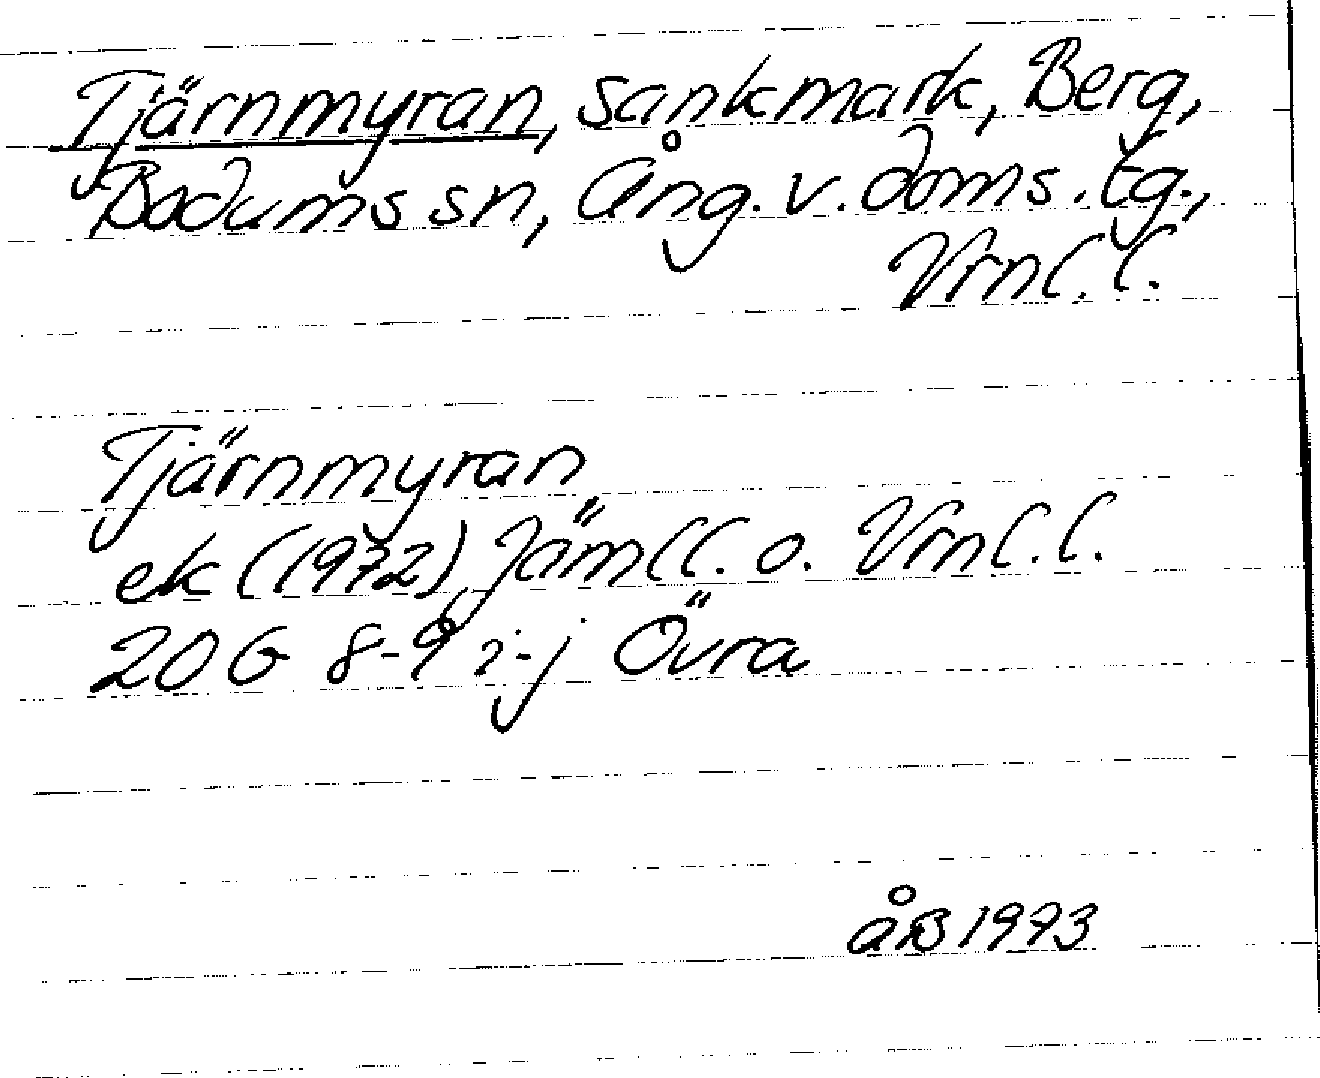 Tjärnmyran, sankmark, Berg,
Bodums sn, Ång. v. doms. tg.,
Vrnl. l.
Tjärnmyran
ek (1972) Jämtl. l. o. Vrnl. l.
20 G 8-9 i-j Övra
åB 1973